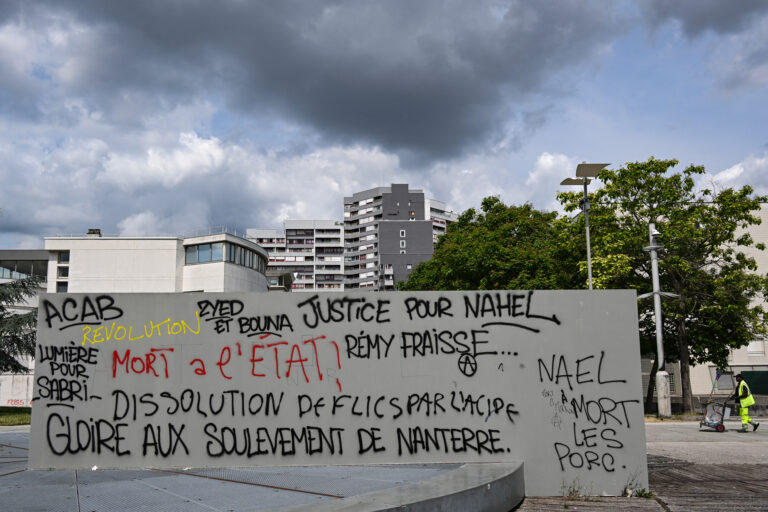 ACAB
REVOLUTION
ZYED
ET BOUNA
JUSTICE POUR NAHEL
LUMIÈRE
POUR
SABRI-
MORT a l'ETATI
RÉMY FRAISSE...
DISSOLUTION DE FLICS PAR L'ACIDE
GLOIRE AUX SOULEVEMENT DE NANTERRE.
NAEL
À MORT
LES
PORC.